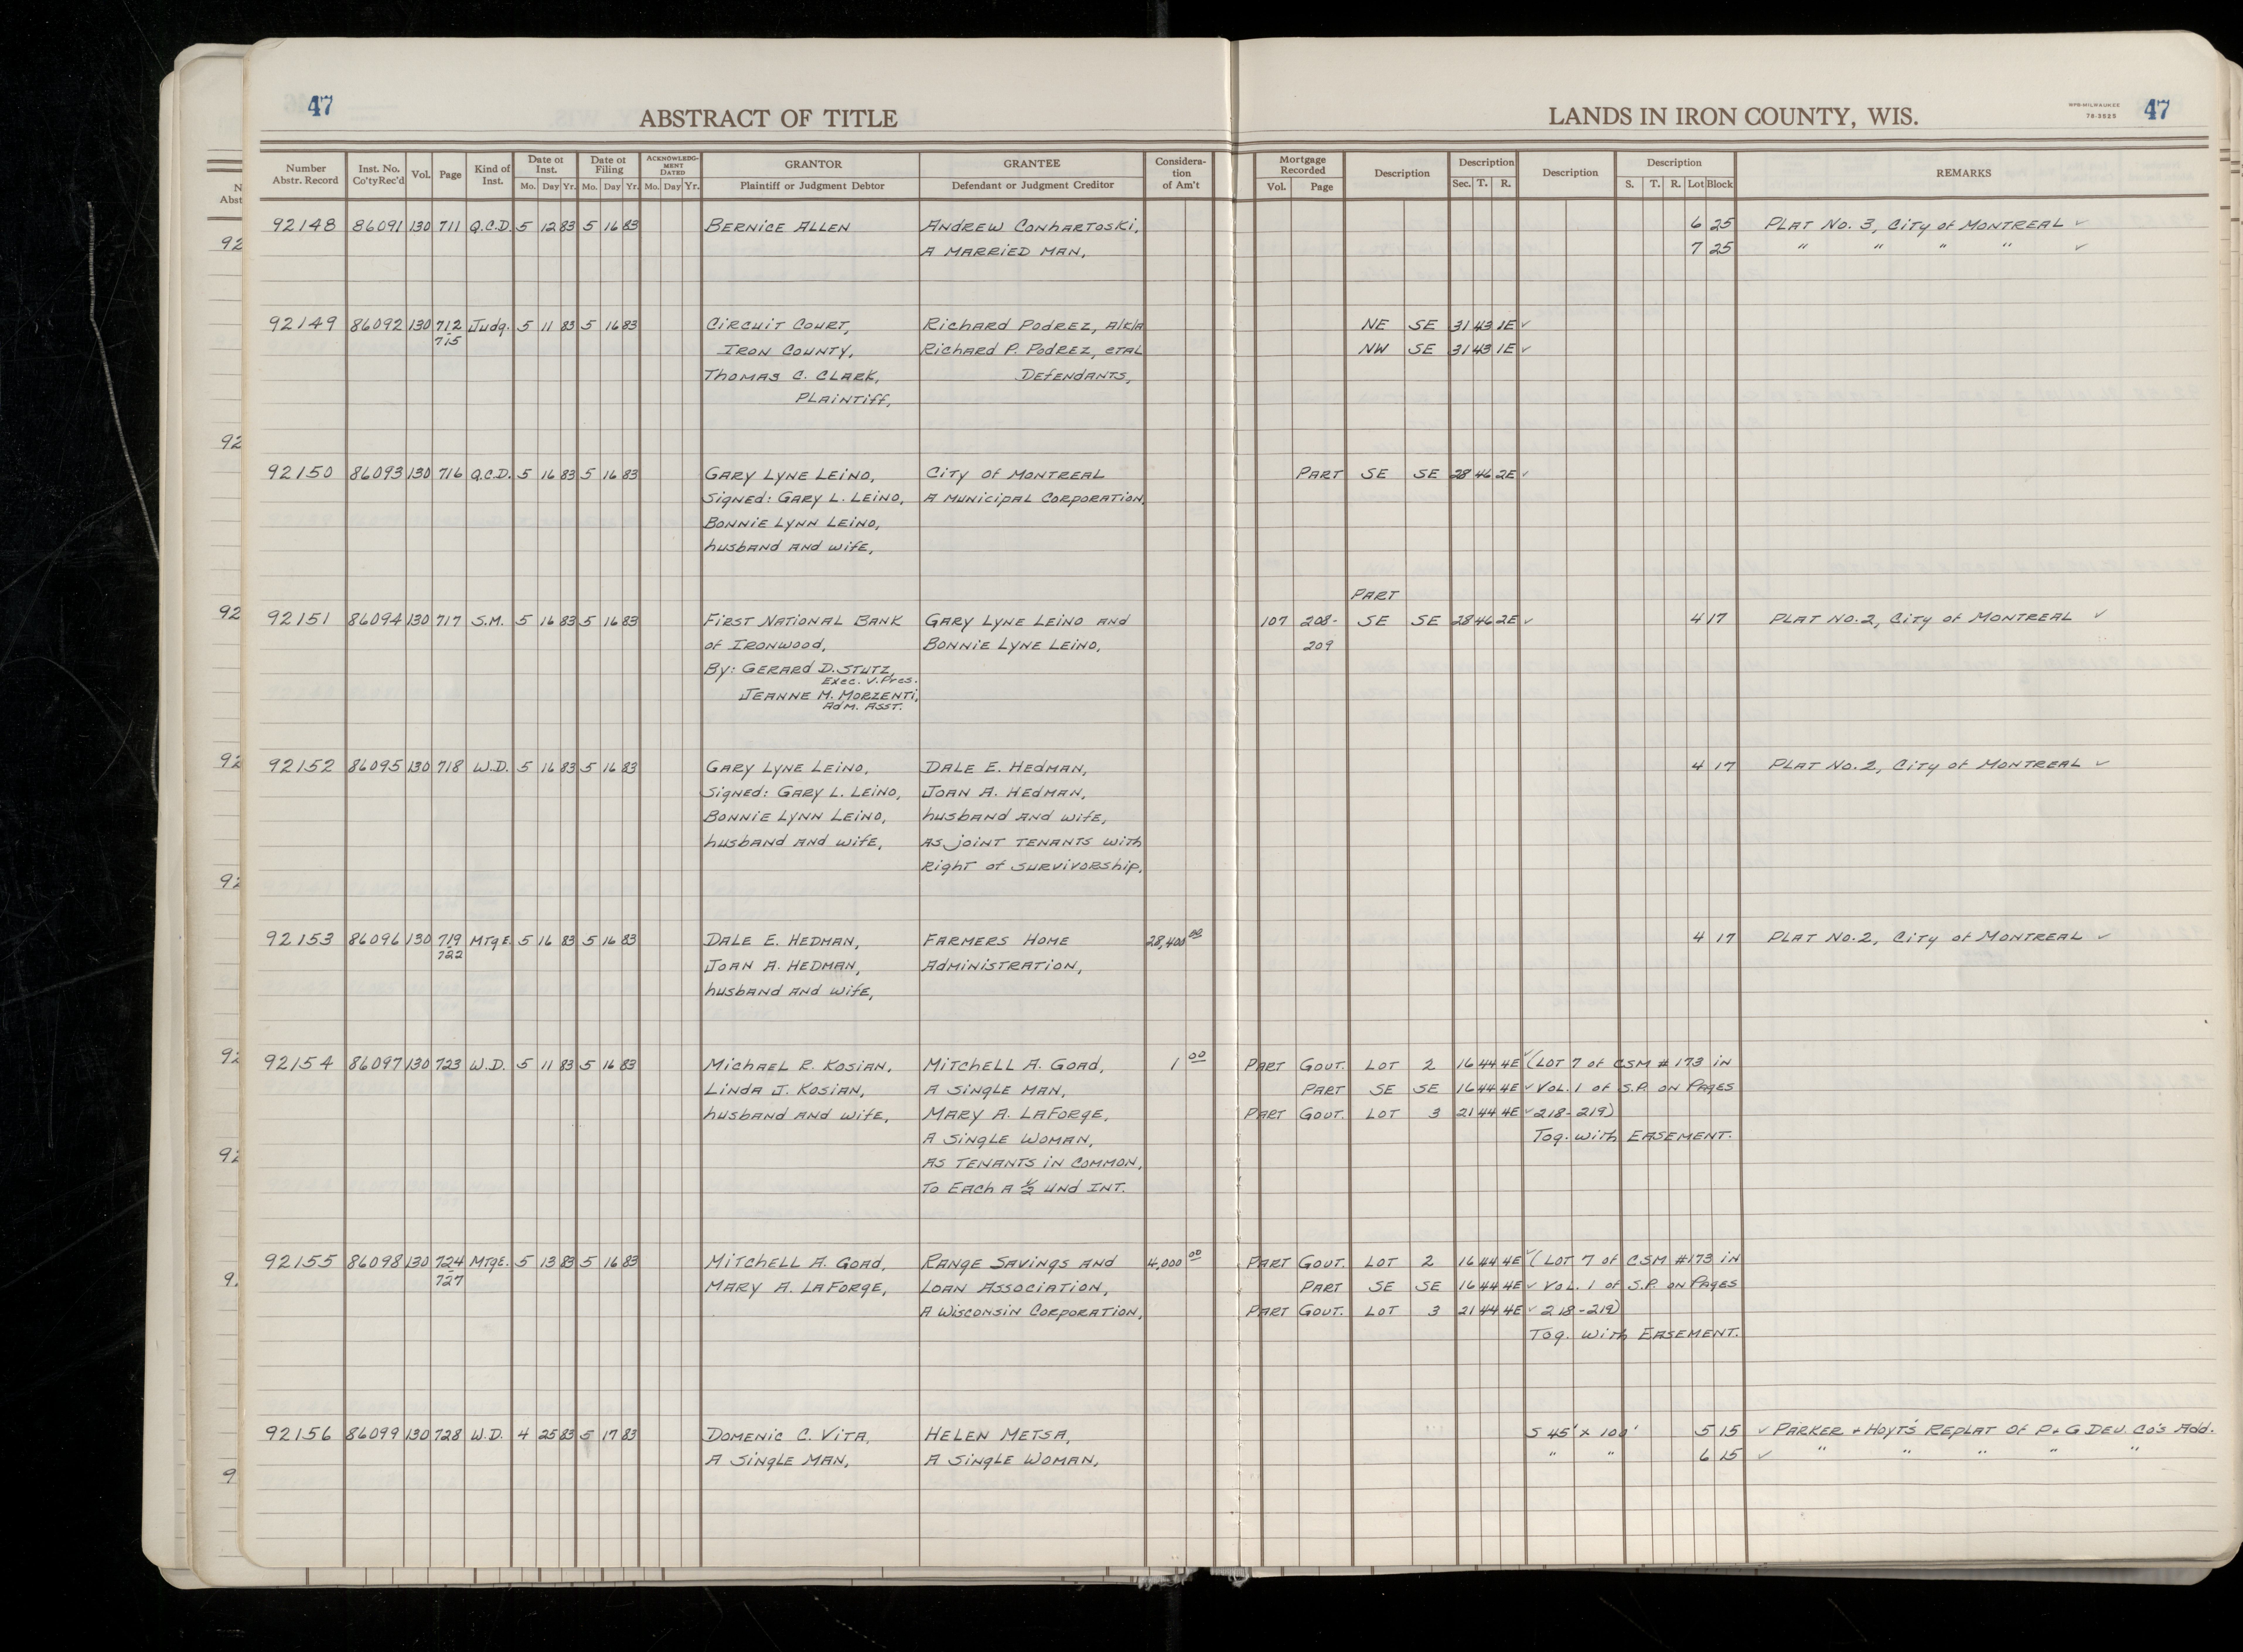 47
ABSTRACT OF TITLE
LANDS IN IRON COUNTY, WIS.
WPB-MILWAUKEE
78-3525
47
Number Abstr. Record Inst. No. Co'ty Rec'd Vol. Page Kind of Inst. Date of Inst. Mo. Day Yr. Date of Filing Mo. Day Yr. ACKNOWLEDG-MENT DATED Mo. Day Yr. GRANTOR Plaintiff or Judgment Debtor GRANTEE Defendant or Judgment Creditor Considera-tion of Am't Mortgage Recorded Vol. Page Description Description Sec. T. R. Description Description S. T. R. Lot Block REMARKS
92148 86091 130 711 Q.C.D. 5 12 83 5 16 83 BERNICE ALLEN ANDREW CONHARTOSKI, 6 25 PLAT No. 3, City of MONTREAL ✓
A MARRIED MAN, 7 25 " " " " ✓
92149 86092 130 712 Judg. 5 11 83 5 16 83 CIRCUIT COURT, RICHARD PODREZ, a/k/a NE SE 31 43 1E ✓
715 IRON COUNTY, RICHARD P. PODREZ, ETAL NW SE 31 43 1E ✓
THOMAS C. CLARK, DEFENDANTS,
PLAINTIFF,
92150 86093 130 716 Q.C.D. 5 16 83 5 16 83 GARY LYNE LEINO, City of MONTREAL PART SE SE 28 46 2E ✓
Signed: GARY L. LEINO, A MUNICIPAL CORPORATION,
BONNIE LYNN LEINO,
husband and wife,
PART
92151 86094 130 717 S.M. 5 16 83 5 16 83 FIRST NATIONAL BANK GARY LYNE LEINO and 107 208- SE SE 28 46 2E ✓ 4 17 PLAT No. 2, City of MONTREAL ✓
of IRONWOOD, BONNIE LYNE LEINO, 209
By: GERARD D. STUTZ,
Exec. V. Pres.
JEANNE M. MORZENTI,
Adm. Asst.
92152 86095 130 718 W.D. 5 16 83 5 16 83 GARY LYNE LEINO, DALE E. HEDMAN, 4 17 PLAT No. 2, City of MONTREAL ✓
Signed: GARY L. LEINO, JOAN A. HEDMAN,
BONNIE LYNN LEINO, husband and wife,
husband and wife, AS JOINT TENANTS with
Right of SURVIVORSHIP.
92153 86096 130 719 MTGE. 5 16 83 5 16 83 DALE E. HEDMAN, FARMERS HOME 28,400 00 4 17 PLAT No. 2, City of MONTREAL ✓
722 JOAN A. HEDMAN, ADMINISTRATION,
husband and wife,
92154 86097 130 723 W.D. 5 11 83 5 16 83 MICHAEL R. KOSIAN, MITCHELL A. GOAD, 1 00 PART GOVT. LOT 2 16 44 4E ✓ (LOT 7 of CSM # 173 in
LINDA J. KOSIAN, A SINGLE MAN, PART SE SE 16 44 4E ✓ VOL. 1 of S.P. on PAGES
husband and wife, MARY A. LAFORGE, PART GOVT. LOT 3 21 44 4E ✓ 218-219)
A SINGLE WOMAN, Tog. with EASEMENT.
AS TENANTS IN COMMON,
To EACH A ½ UND INT.
92155 86098 130 724 MTGE. 5 13 83 5 16 83 MITCHELL A. GOAD, RANGE SAVINGS and 4,000 00 PART GOVT. LOT 2 16 44 4E ✓ (LOT 7 of CSM #173 in
727 MARY A. LAFORGE, LOAN ASSOCIATION, PART SE SE 16 44 4E ✓ VOL. 1 of S.P. on PAGES
A WISCONSIN CORPORATION, PART GOVT. LOT 3 21 44 4E ✓ 218-219)
Tog. with EASEMENT.
92156 86099 130 728 W.D. 4 25 83 5 17 83 DOMENIC C. VITA, HELEN METSA, S 45' x 100' 5 15 ✓ PARKER + HOYT'S REPLAT OF P+G DEV. CO'S Add.
A SINGLE MAN, A SINGLE WOMAN, " " 6 15 ✓ " " " " "